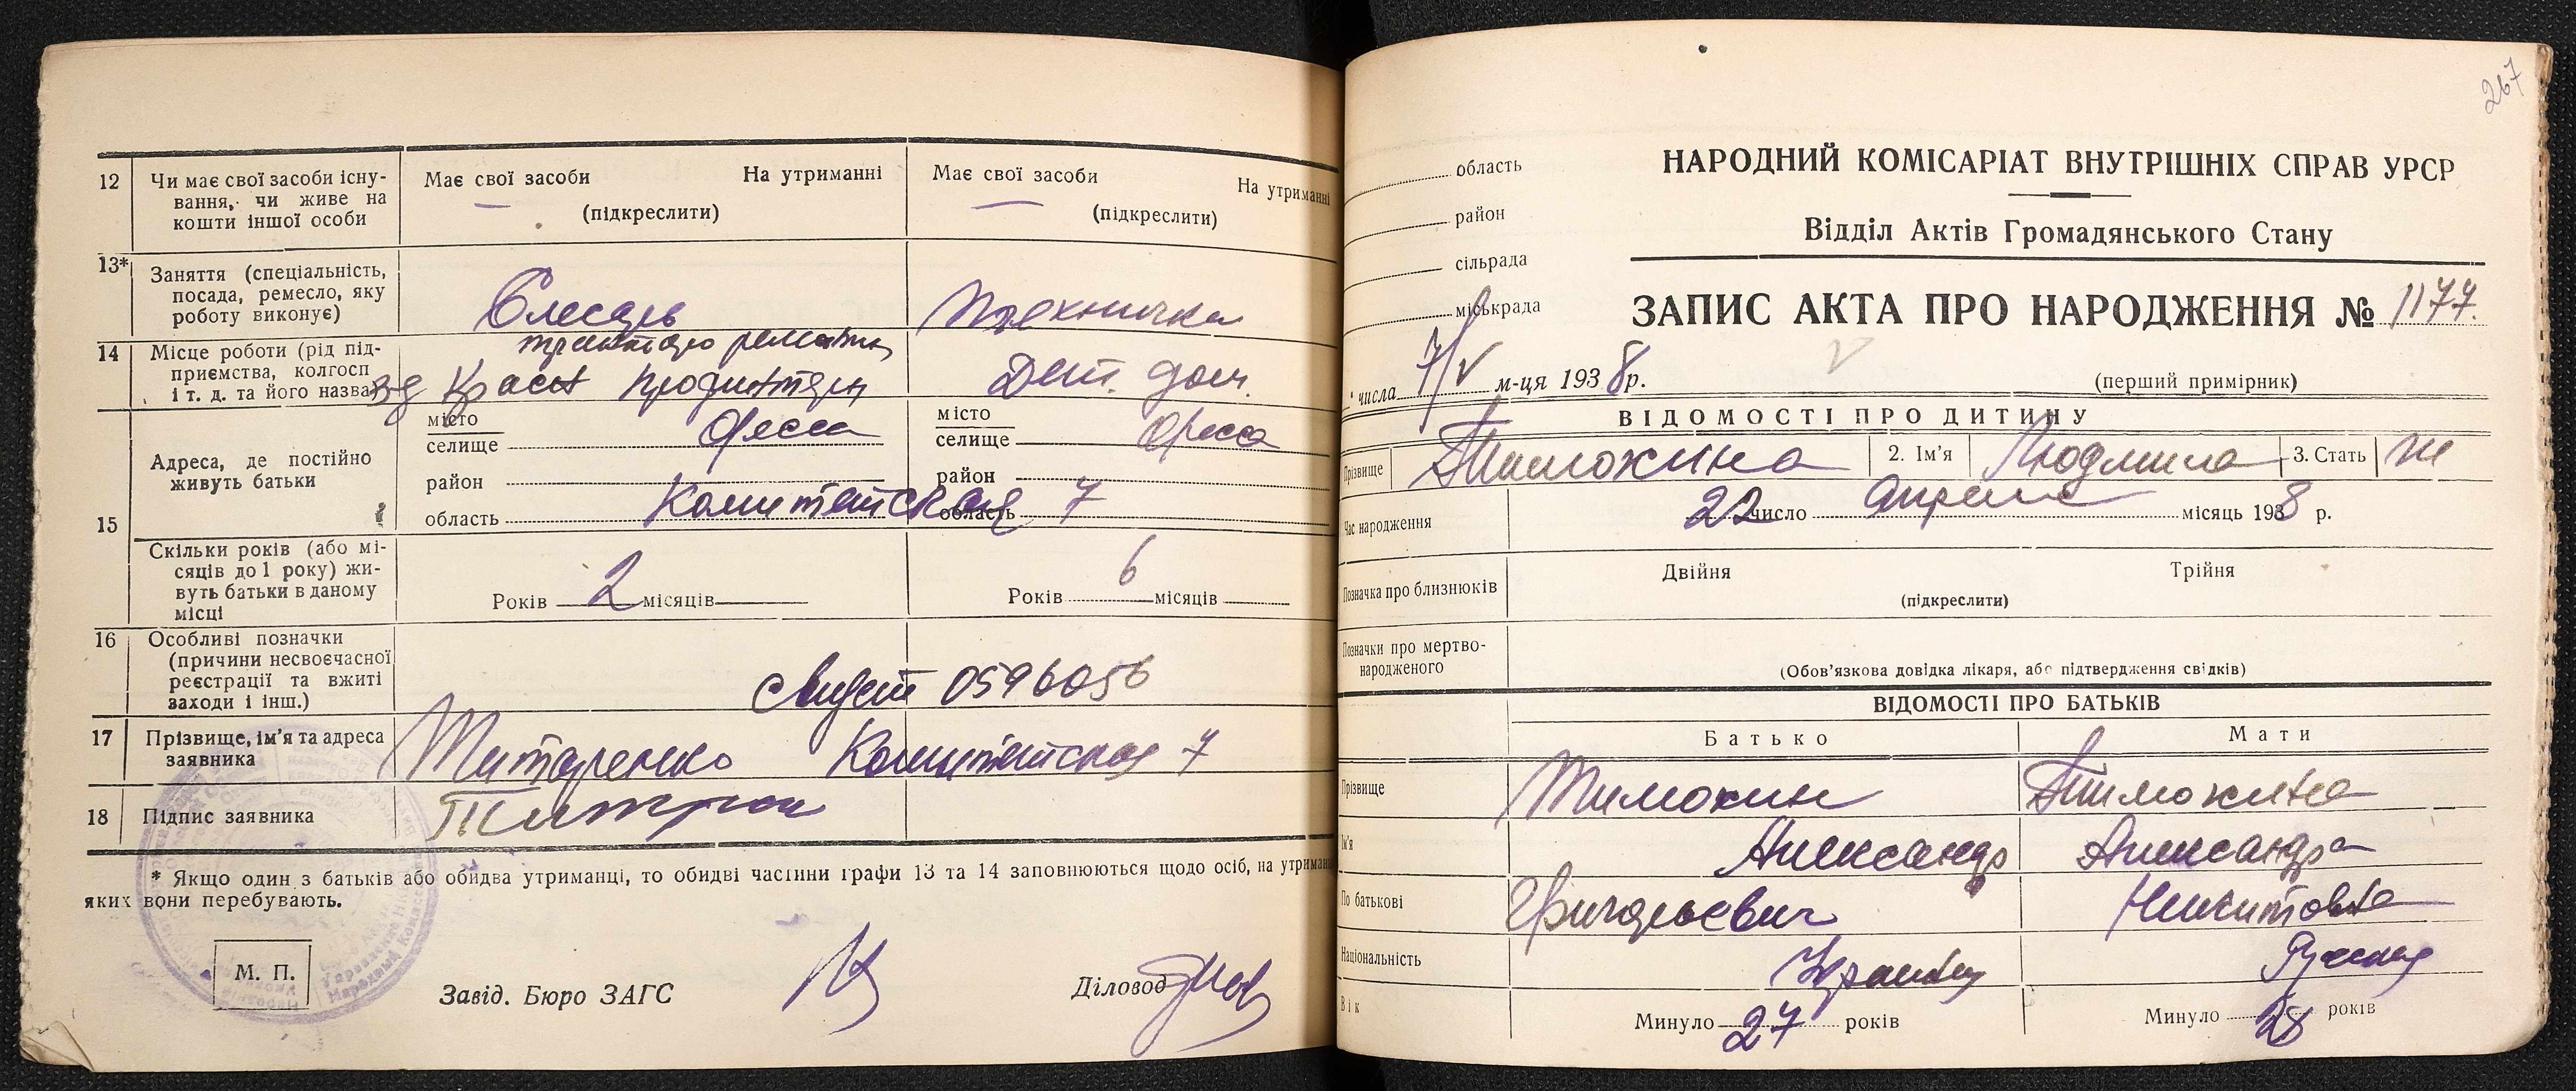 12
Чи має свої засоби існу-
вання, чи живе на
кошти іншої особи
Має свої засоби На утриманні
(підкреслити)
Має свої засоби На утриманні
(підкреслити)
13*
Заняття (спеціальність,
посада, ремесло, яку
роботу виконує)
Слесарь
Техничка
14
Місце роботи (рід під-
приємства, колгосп
і т. д. та його назва)
Дет. дом.
15
Адреса, де постійно
живуть батьки
місто
селище Одесса
район
область Комитетская 7
місто
селище Одесса
район
область
Скільки років (або мі-
сяців до 1 року) жи-
вуть батьки в даному
місці
Років 2 місяців
Років 6 місяців
16
Особливі позначки
(причини несвоєчасної
реєстрації та вжиті
заходи і інш.)
0596056
17
Прізвище, ім'я та адреса
заявника
Титаренко Комитетская 7
18
Підпис заявника
* Якщо один з батьків або обидва утриманці, то обидві частини графи 13 та 14 заповнюються щодо осіб, на утриманні
яких вони перебувають.
М. П.
Завід. Бюро ЗАГС
Діловод
267
область
район
сільрада
міськрада
числа 7/V м-ця 1938 р.
НАРОДНИЙ КОМІСАРІАТ ВНУТРІШНІХ СПРАВ УРСР
Відділ Актів Громадянського Стану
ЗАПИС АКТА ПРО НАРОДЖЕННЯ № 1177.
(перший примірник)
ВІДОМОСТІ ПРО ДИТИНУ
Прізвище Тимохина 2. Ім'я Людмила 3. Стать ж
Час народження 22 число апреля місяць 1938 р.
Позначка про близнюків
Двійня Трійня
(підкреслити)
Позначки про мертво-
народженого
(Обов'язкова довідка лікаря, або підтвердження свідків)
ВІДОМОСТІ ПРО БАТЬКІВ
Батько Мати
Прізвище Тимохин Тимохина
Ім'я Александр Александра
По батькові Григорьевич Никитовна
Національність Русская
Вік Минуло 27 років Минуло 28 років